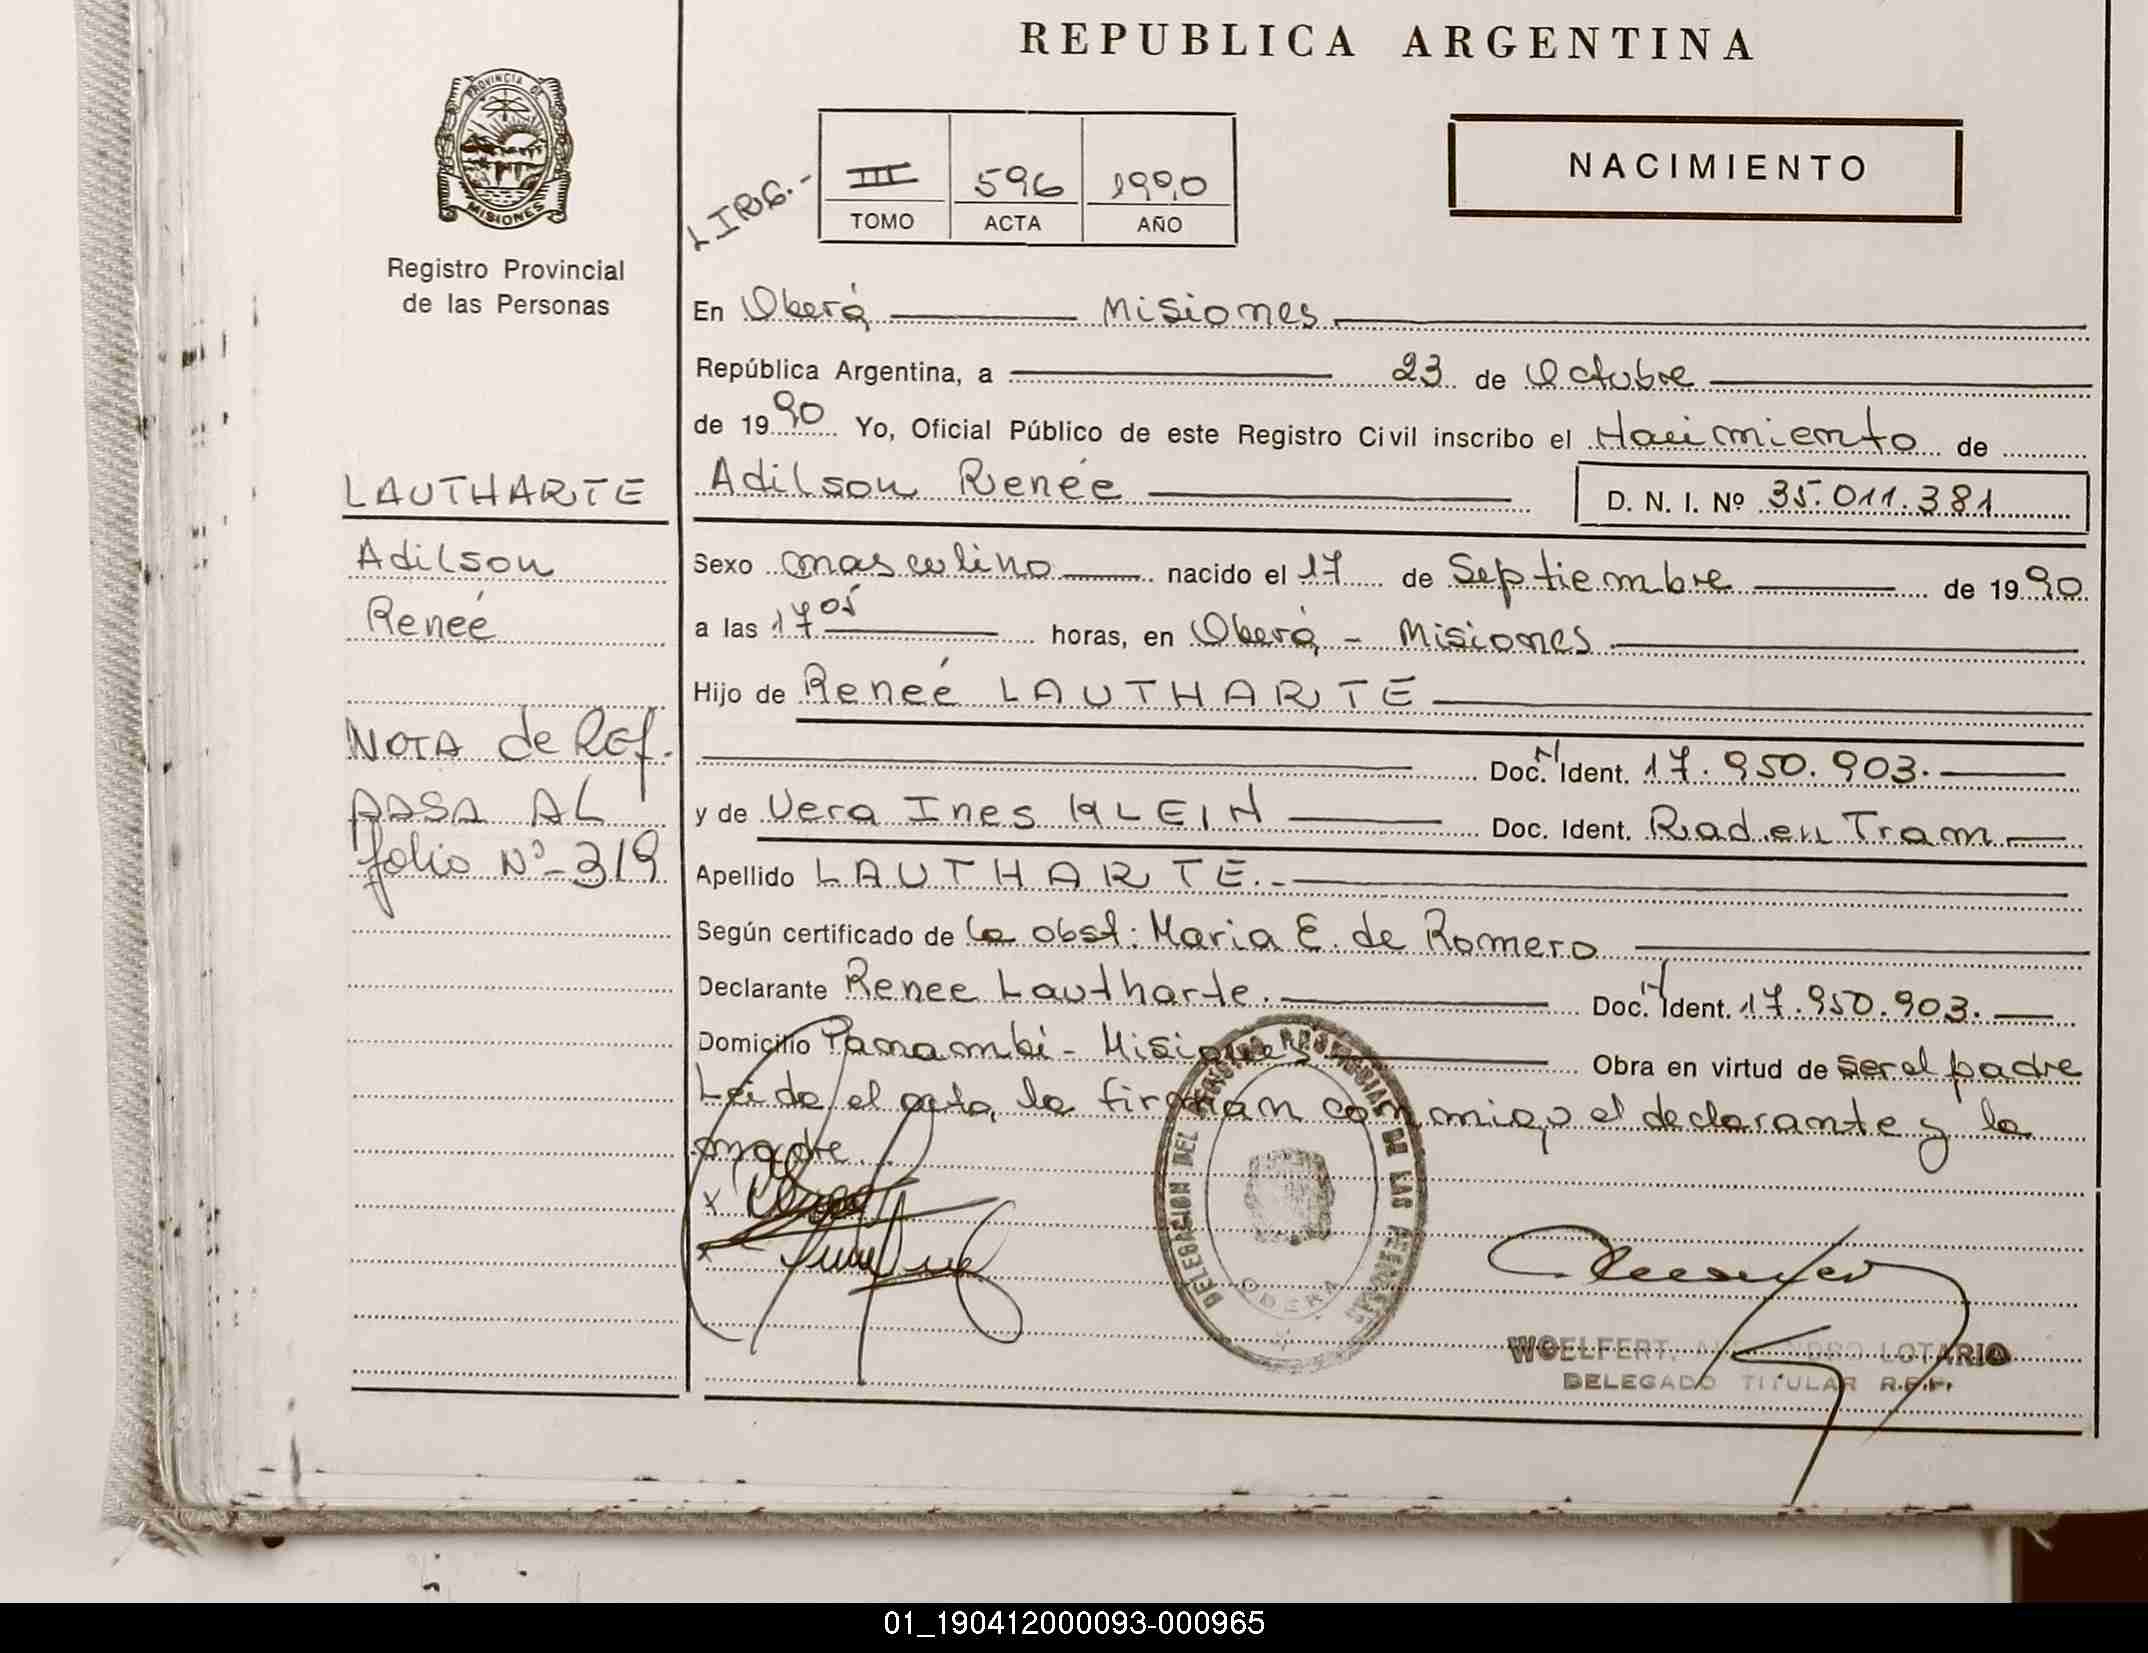 REPUBLICA ARGENTINA
PROVINCIA DE
MISIONES
Registro Provincial
de las Personas
LIRG.-
III 596 1990
TOMO ACTA AÑO
NACIMIENTO
En Oberá Misiones
República Argentina, a 23 de Octubre
de 1990 Yo, Oficial Público de este Registro Civil inscribo el Nacimiento de
Adilson Reneé D. N. I. Nº 35.011.381
LAUTHARTE
Adilson
Reneé
NOTA de Ref.
PASA AL
folio Nº-319
Sexo masculino nacido el 17 de Septiembre de 1990
a las 17 05 horas, en Oberá - Misiones
Hijo de Reneé LAUTHARTE
Doc. N Ident. 17.950.903.
y de Vera Ines KLEIN Doc. Ident. Rad en Tram
Apellido LAUTHARTE.-
Según certificado de la obst: Maria E. de Romero
Declarante Renee Lautharte. Doc. N Ident. 17.950.903.
Domicilio Panambi - Misiones Obra en virtud de ser el padre
Leida el acta, la firman conmigo el declarante y la
madre
DELEGACION DEL REGISTRO PROVINCIAL DE LAS PERSONAS
OBERA
WOELFERT, LOTARIO
DELEGADO TITULAR R.P.P.
01_190412000093-000965